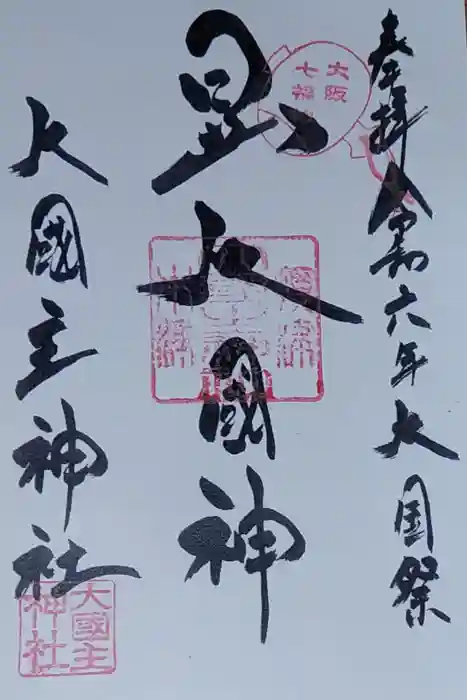 奉拝 令和六年 大国祭
大阪
七福
日出大國神
大國主神社
大國主
神社